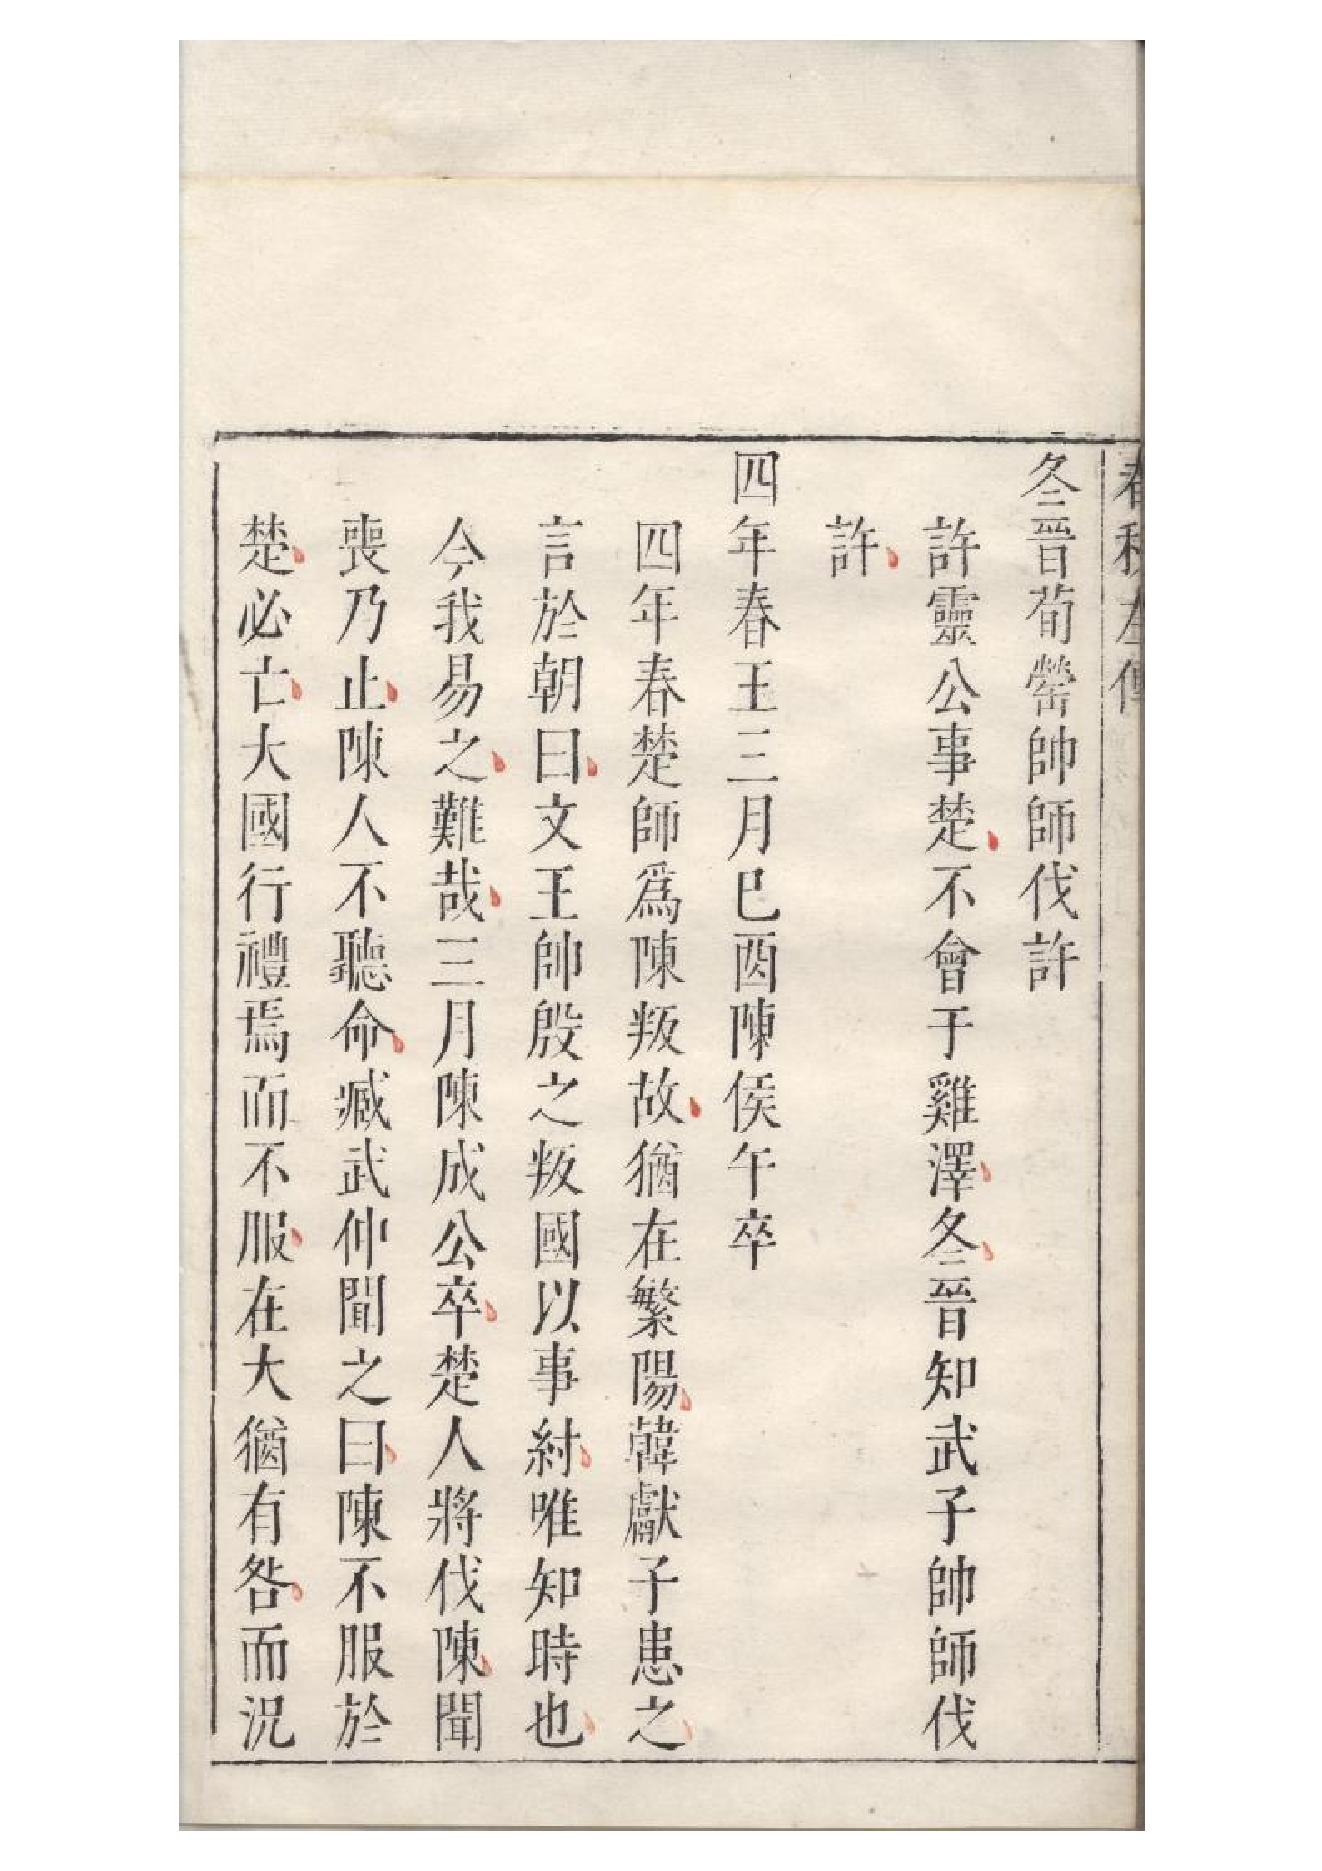 春秋左傳
冬晉荀罃帥師伐許
許靈公事楚不會于雞澤冬晉知武子帥師伐
許
四年春王三月巳酉陳侯午卒
四年春楚師爲陳叛故猶在繁陽韓獻子患之
言於朝曰文王帥殷之叛國以事紂唯知時也
今我易之難哉三月陳成公卒楚人將伐陳聞
喪乃止陳人不聽命臧武仲聞之曰陳不服於
楚必亡大國行禮焉而不服在大猶有咎而況